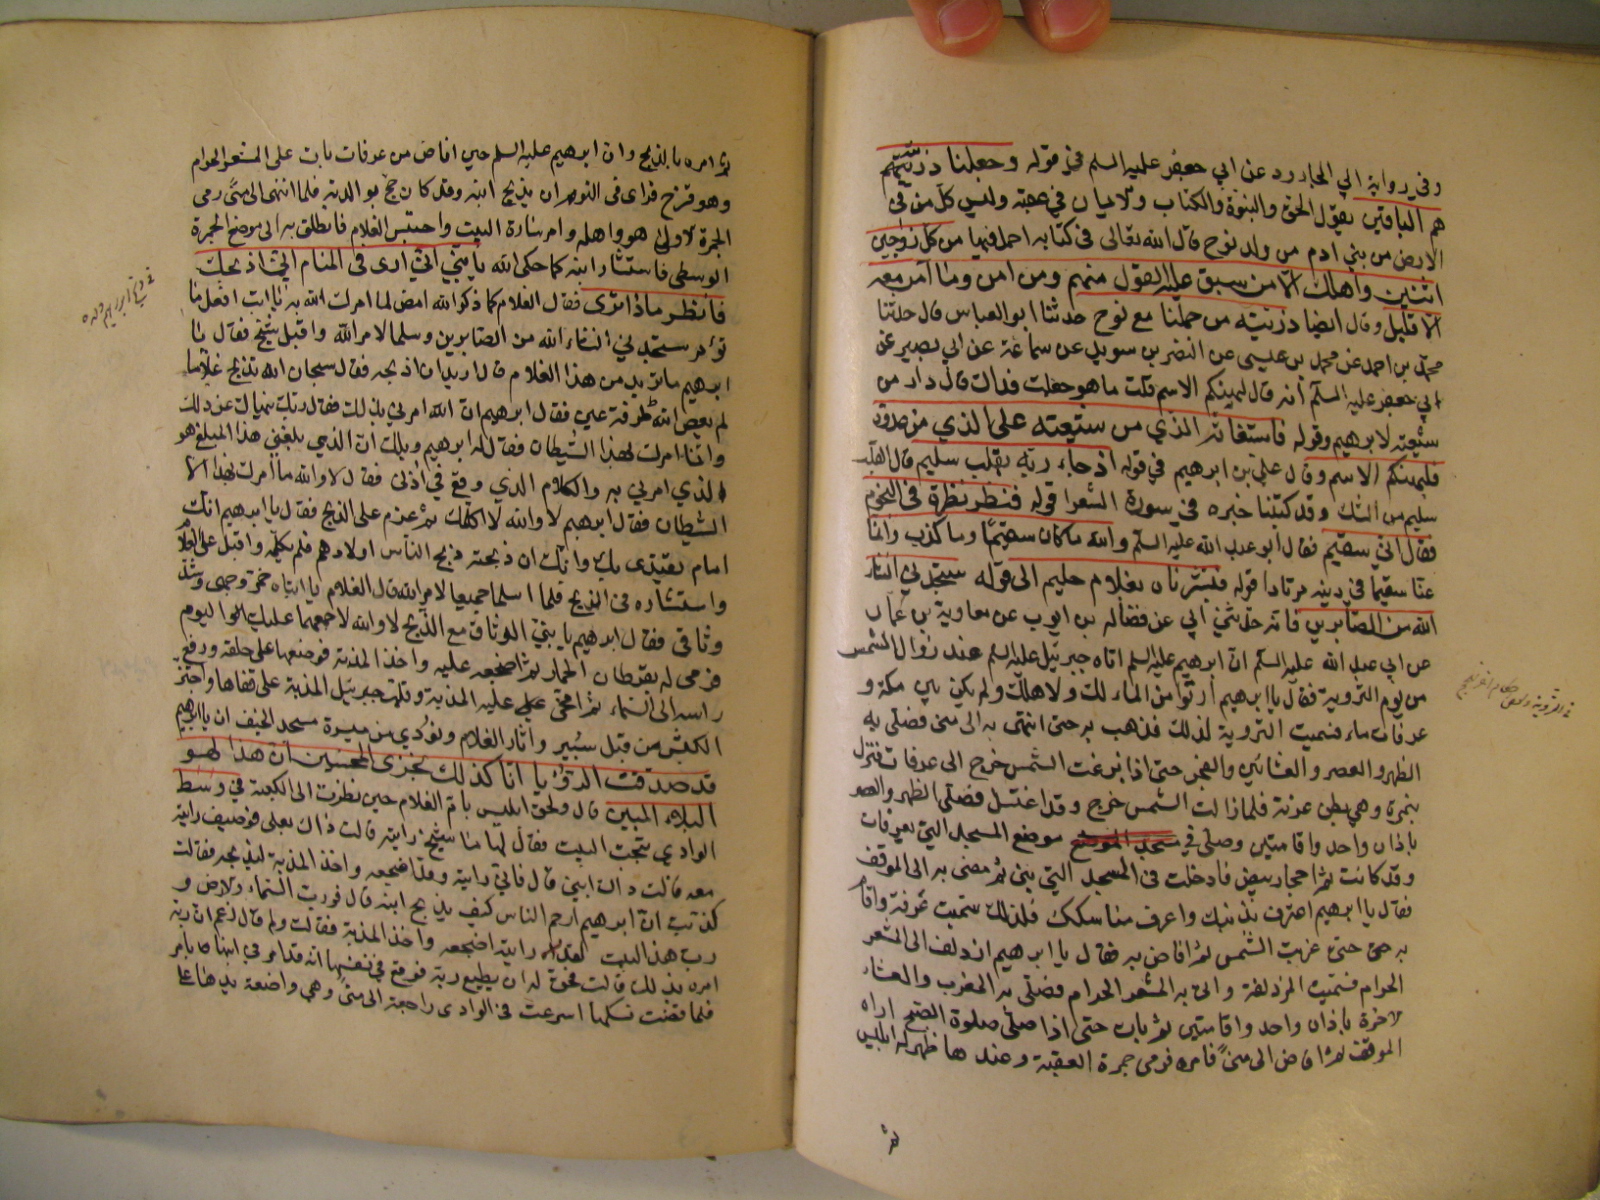 وفي رواية ابي الجارود عن ابي جعفر عليه السلم في قوله وجعلنا ذريّتهم
هم الباقين يقول الحق والنبوة والكتاب والايمان في عقبه وليس كلّ من في
الارض من بني ادم من ولد نوح قال الله تعالى في كتابه احمل فيها من كل زوجين
اثنين واهلك الّا من سبق عليه القول منهم ومن امن وما آمن معه
الّا قليل وقال ايضا ذريّة من حملنا مع نوح حدثنا ابو العباس قال حدثنا
محمّد بن احمد عن محمد بن عيسى عن النضر بن سويد عن سماعة عن ابي بصير عن
ابي جعفر عليه السلم أنه قال ليهنيكم الاسم قلت ما هو جعلت فداك قال وان من
شيعته لابرهيم وقوله فاستغاثه الذي من شيعته على الذي من عدوّه
فليهنكم الاسم وقال علي بن ابرهيم في قوله اذ جاء ربّه بقلب سليم قال القلب
سليم من الشك وقد كتبنا خبره في سورة الشعرا قوله فنظر نظرة في النجوم
فقال انّي سقيم فقال أبو عبد الله عليه السلم والله ما كان سقيمًا وما كذب وانّما
عنّا سقيمًا في دينه مرتادا قوله فبشّرناه بغلام حليم الى قوله ستجدني انشاء
الله من الصّابرين فانّه حدّثني ابي عن فضالة بن ايوب عن معاوية بن عمّار
عن ابي عبد الله عليه السلم انّ ابرهيم عليه السلم اتاه جبرئيل عليه السلم عند زوال الشمس
من يوم التروية فقال يا ابرهيم ارتو من الماء لك ولاهلك ولم يكن بين مكة و
عرفات ماء فسميت التروية لذلك فذهب به حتى انتهى به الى منى فصلّى به
الظهر والعصر والعشائين والفجر حتى اذا بزغت الشمس خرج الى عرفات فنزل
بنمرة وهي بطن عرنة فلمّا زالت الشمس خرج وقد اغتسل فصلّى الظهر والعصر
باذان واحد واقامتين وصلّى في موضع المسجد الّتي بعرفات
وقد كانت ثمّ احجار بيض فادخلت في المسجد التي بني ثم مضى به الى الموقف
فقال يا ابرهيم اعترف بذنبك واعرف مناسكك فلذلك سميت عرفة واقام
به حتى غربت الشمس ثمّ افاض به فقال يا ابرهيم ازدلف الى المشعر
الحرام فسمّيت المزدلفة واتى به المشعر الحرام فصلّى به المغرب والعشاء
الاخرة باذان واحد واقامتين ثمّ بات حتى اذا صلّى صلوة الصبح اراه
الموقف ثمّ افاض الى منىً فامره فرمى جمرة العقبة وعندها ظهر له ابليس
ثم
ثمّ امره بالذبح وان ابرهيم عليه السلم حين افاض من عرفات بات على المشعر الحرام
وهو قزح فراى في النوم ان يذبح ابنه وقد كان حجّ بوالدته فلما انتهى الى منًى رمى
الجمرة الاولى هو واهله وامر سارة البيت واحتبس الغلام فانطلق به الى موضع الجمرة
الوسطى فاستشار ابنه كما حكى الله يا بنيّ انّي ارى في المنام انّي اذبحك
فانظر ماذا ترى فقال الغلام كما ذكر الله امض لما امرك الله به يا ابت افعل ما
تؤمر ستجدني انشاء الله من الصابرين وسلما لامر الله واقبل شيخ فقال يا
ابرهيم ما تريد من هذا الغلام قال اريد ان اذبحه فقال سبحان الله تذبح غلامًا
لم يعص الله طرفة عين فقال ابرهيم انّ الله امرني بذلك فقال ربّك ينهاك عن ذلك
وانّما امرك لهذا الشيطان فقال له ابرهيم ويلك انّ الذي بلغني هذا المبلغ هو
الذي امرني به والكلام الذي وقع في اذنى فقال لا والله ما أمرك بهذا الّا
الشيطان فقال ابرهيم لا والله لا اكلّمك ثمّ عزم على الذبح فقال يا ابرهيم انّك
امام يقتدى بك وانّك ان ذبحته ذبح الناس اولادهم فلم يكلّمه واقبل على الغلام
واستشاره في الذبح فلمّا اسلما جميعا لامر الله قال الغلام يا ابتاه خمّر وجهى وشدّ
وثاقى فقال ابرهيم يا بنيّ الوثاق مع الذّبح لا والله لا اجمعهما عليك اليوم
فرمى له بقرطان الحمار ثمّ اضجعه عليه واخذ المدية فوضعها على حلقه ورفع
راسه الى السّماء ثمّ انتحى عليه المدية وقلب جبرئيل المدية على قفاها واجترّ
الكبش من قبل ثبير واثار الغلام ونودي من ميسرة مسجد الخيف ان يا ابرهيم
قد صدّقت الرؤيا انا كذلك نجزى المحسنين ان هذا لهو
البلاء المبين قال ولحق ابليس بامّ الغلام حين نظرت الى الكعبة في وسط
الوادي بحجت البيت فقال لها ما شيخ رايته قالت ذاك بعلي فوصيف رايته
معه قالت ذاك ابني قال فاني رايته وقد اضجعه واخذ المدية ليذبحه فقالت
كذبت انّ ابرهيم ارحم الناس كيف يذبح ابنه قال فوربّ السّماء والارض و
ربّ هذا البيت لقد رايته اضجعه واخذ المدية فقالت ولم قال زعم انّ ربه
امره بذلك قالت فحقّ له ان يطيع ربّه فوقع في نفسها انّه قد امر في ابنها بامر
فلما قضت نسكها اسرعت في الوادى راجعة الى منى وهي واضعة يدها على